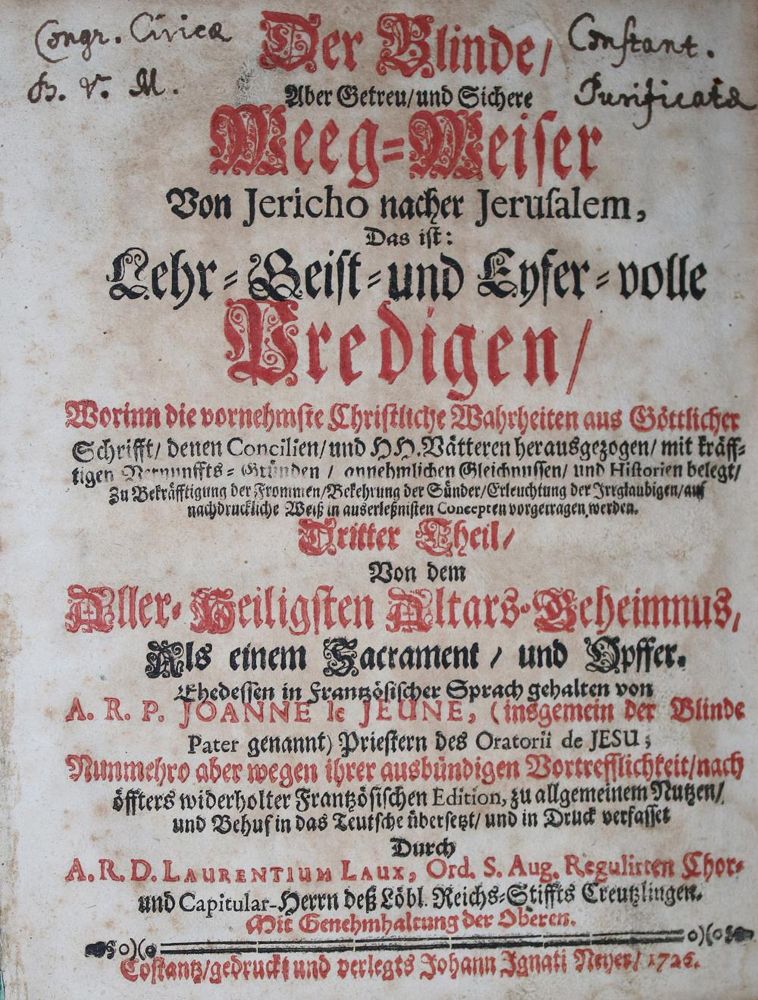 Congr. Civicæ
Constant.
B. V. M.
Purificatæ
Der Blinde/
Aber Getreu/und Sichere
Weeg-Weiser
Von Jericho nacher Jerusalem,
Das ist:
Lehr-Geist-und Eyfer-volle
Predigen/
Worinn die vornehmste Christliche Wahrheiten aus Göttlicher
Schrifft/ denen Concilien/und HH. Vätteren herausgezogen/ mit kräff-
tigen Vernunffts-Gründen/ annehmlichen Gleichnussen/ und Historien belegt/
Zu Bekräfftigung der Frommen/Bekehrung der Sünder/Erleuchtung der Irrglaubigen/auf
nachdruckliche Weiß in auserleßnisten Concepten vorgetragen werden.
Dritter Theil/
Von dem
Aller-Heiligsten Altars-Geheimnus,
Als einem Sacrament/ und Opffer.
Ehedessen in Frantzösischer Sprach gehalten von
A. R. P. JOANNE le JEUNE, (insgemein der Blinde
Pater genannt) Priestern des Oratorii de JESU;
Nunmehro aber wegen ihrer ausbündigen Vortrefflichkeit/nach
öffters widerholter Frantzösischen Edition, zu allgemeinem Nutzen/
und Behuf in das Teutsche übersetzt/ und in Druck verfasset
Durch
A. R. D. LAURENTIUM LAUX, Ord. S. Aug. Regulirten Chor-
und Capitular-Herrn deß Löbl. Reichs-Stiffts Creutzlingen.
Mit Genehmhaltung der Oberen.
Costantz/gedruckt und verlegts Johann Ignati Neyer/ 1726.